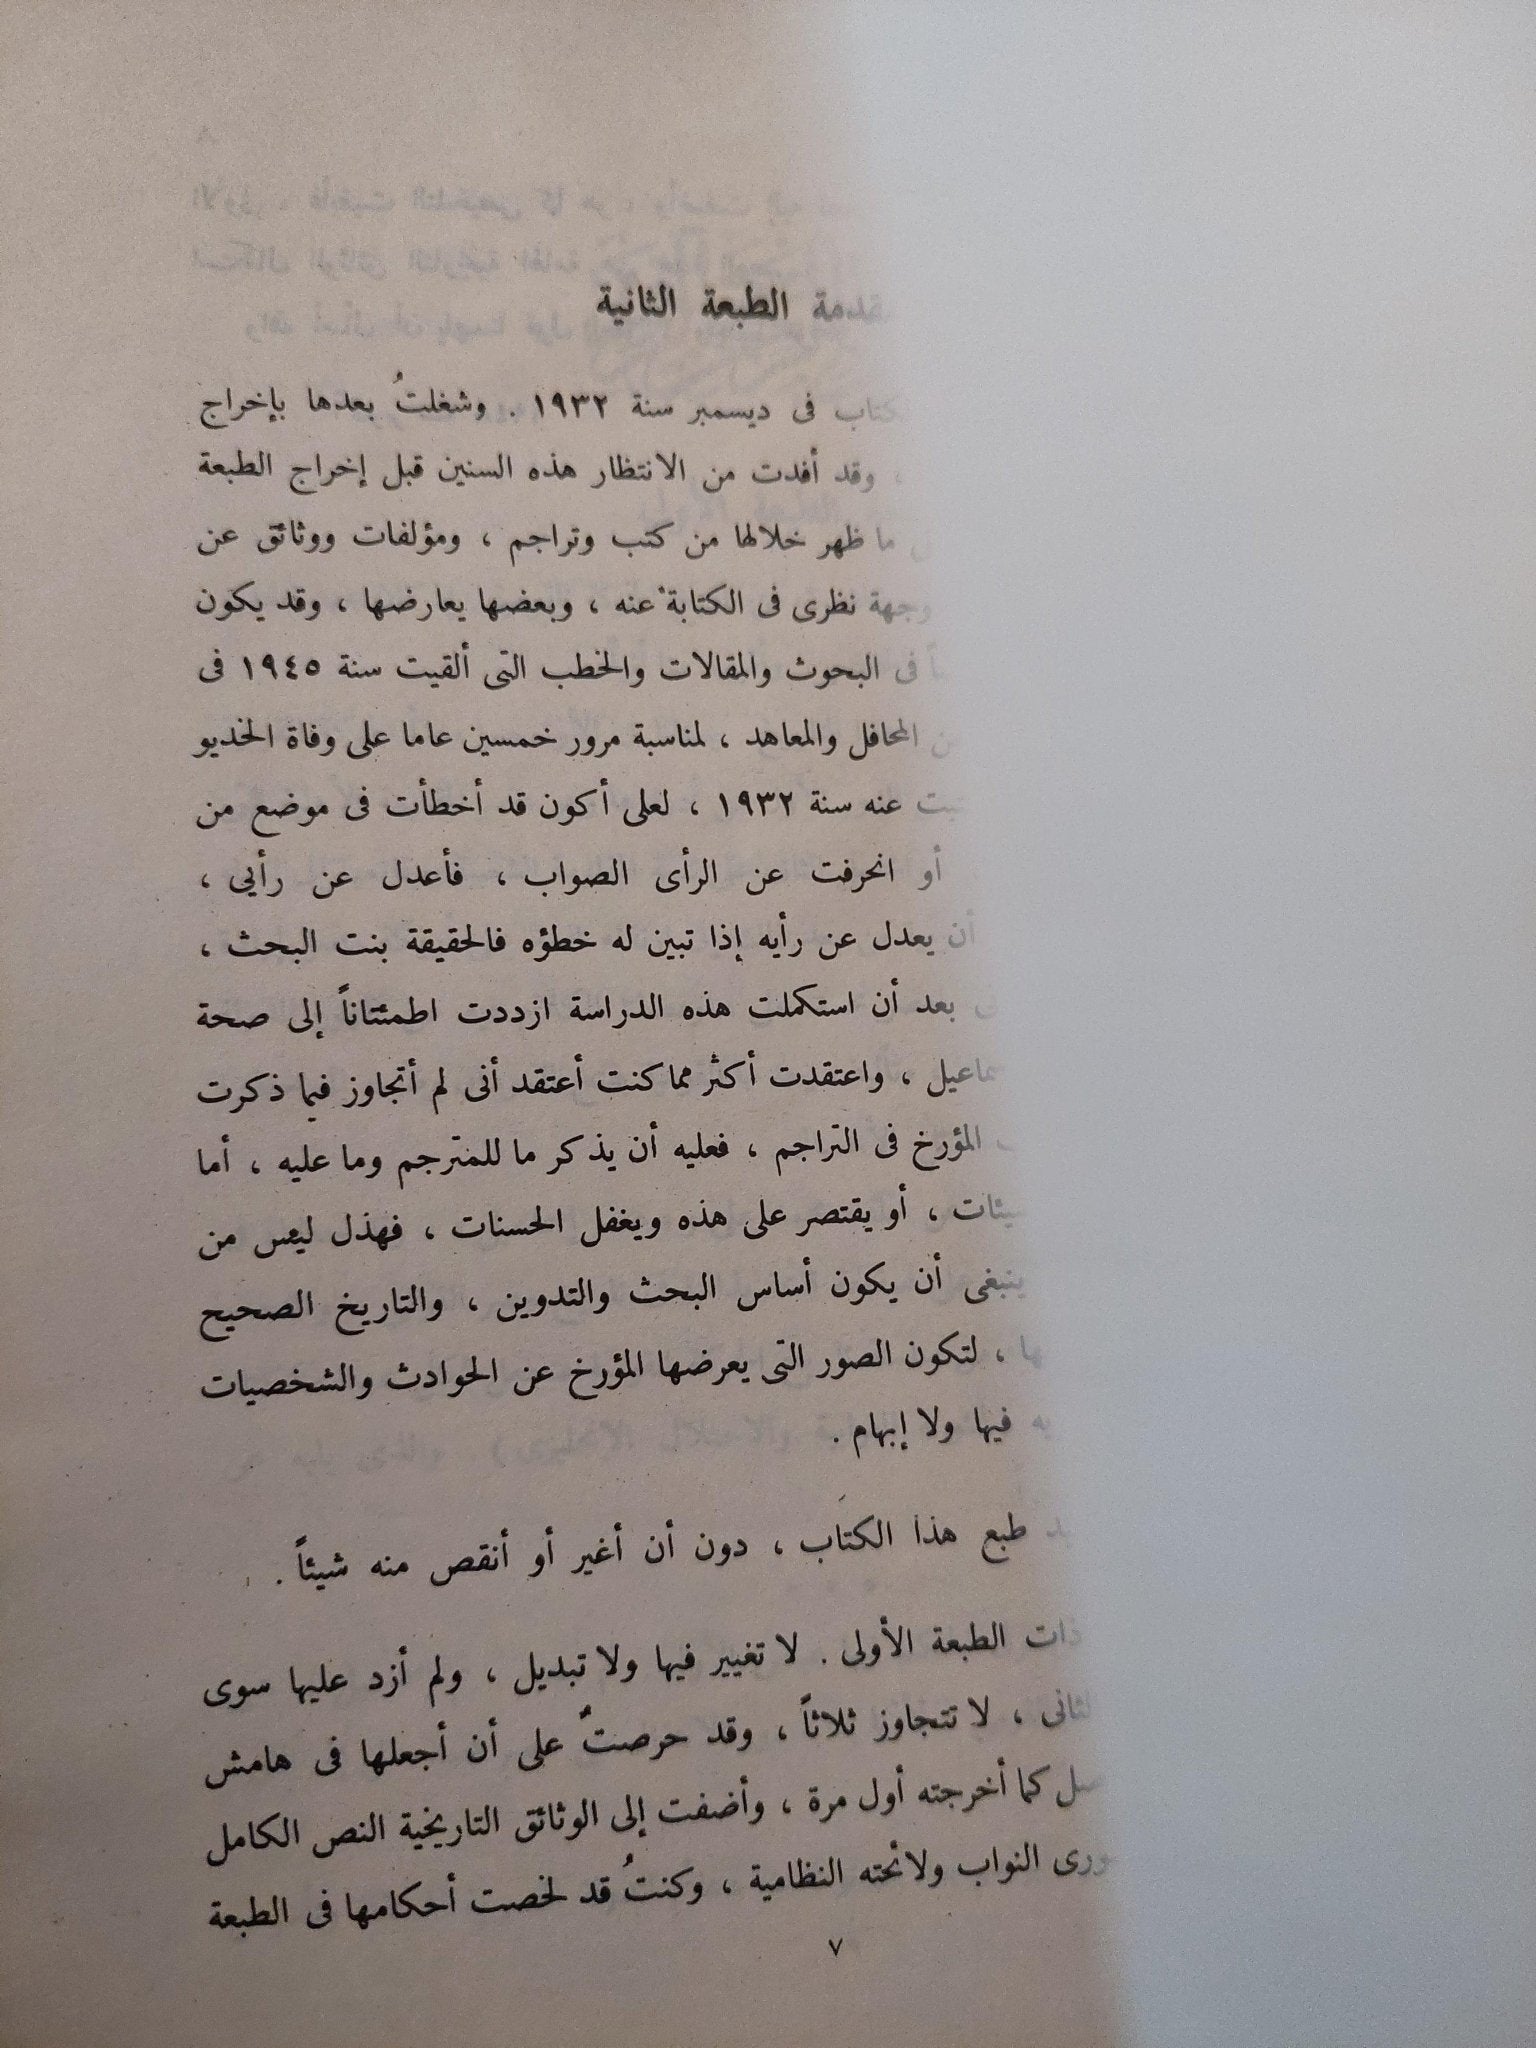 الطبعة الثانية
فى ديسمبر سنة ١٩٣٢ . وشغلتُ بعدها بإخراج
، وقد أفدت من الانتظار هذه السنين قبل إخراج الطبعة
ما ظهر خلالها من كتب وتراجم ، ومؤلفات ووثائق عن
وجهة نظرى فى الكتابة عنه ، وبعضها يعارضها ، وقد يكون
فى البحوث والمقالات والخطب التى ألقيت سنة ١٩٤٥ فى
المحافل والمعاهد ، لمناسبة مرور خمسين عاما على وفاة الخديو
عنه سنة ١٩٣٢ ، لعلى أكون قد أخطأت فى موضع من
أو انحرفت عن الرأى الصواب ، فأعدل عن رأيى ،
أن يعدل عن رأيه إذا تبين له خطؤه فالحقيقة بنت البحث ،
بعد أن استكملت هذه الدراسة ازددت اطمئناناً إلى صحة
، واعتقدت أكثر مما كنت أعتقد أنى لم أتجاوز فيما ذكرت
المؤرخ فى التراجم ، فعليه أن يذكر ما للمترجم وما عليه ، أما
، أو يقتصر على هذه ويغفل الحسنات ، فهذل ليس من
ينبغى أن يكون أساس البحث والتدوين ، والتاريخ الصحيح
، لتكون الصور التى يعرضها المؤرخ عن الحوادث والشخصيات
فيها ولا إبهام .
طبع هذا الكتاب ، دون أن أغير أو أنقص منه شيئاً .
ذات الطبعة الأولى . لا تغيير فيها ولا تبديل ، ولم أزد عليها سوى
، لا تتجاوز ثلاثاً ، وقد حرصتُ على أن أجعلها فى هامش
كما أخرجته أول مرة ، وأضفت إلى الوثائق التاريخية النص الكامل
النواب ولائحته النظامية ، وكنتُ قد لخصت أحكامها فى الطبعة
٧